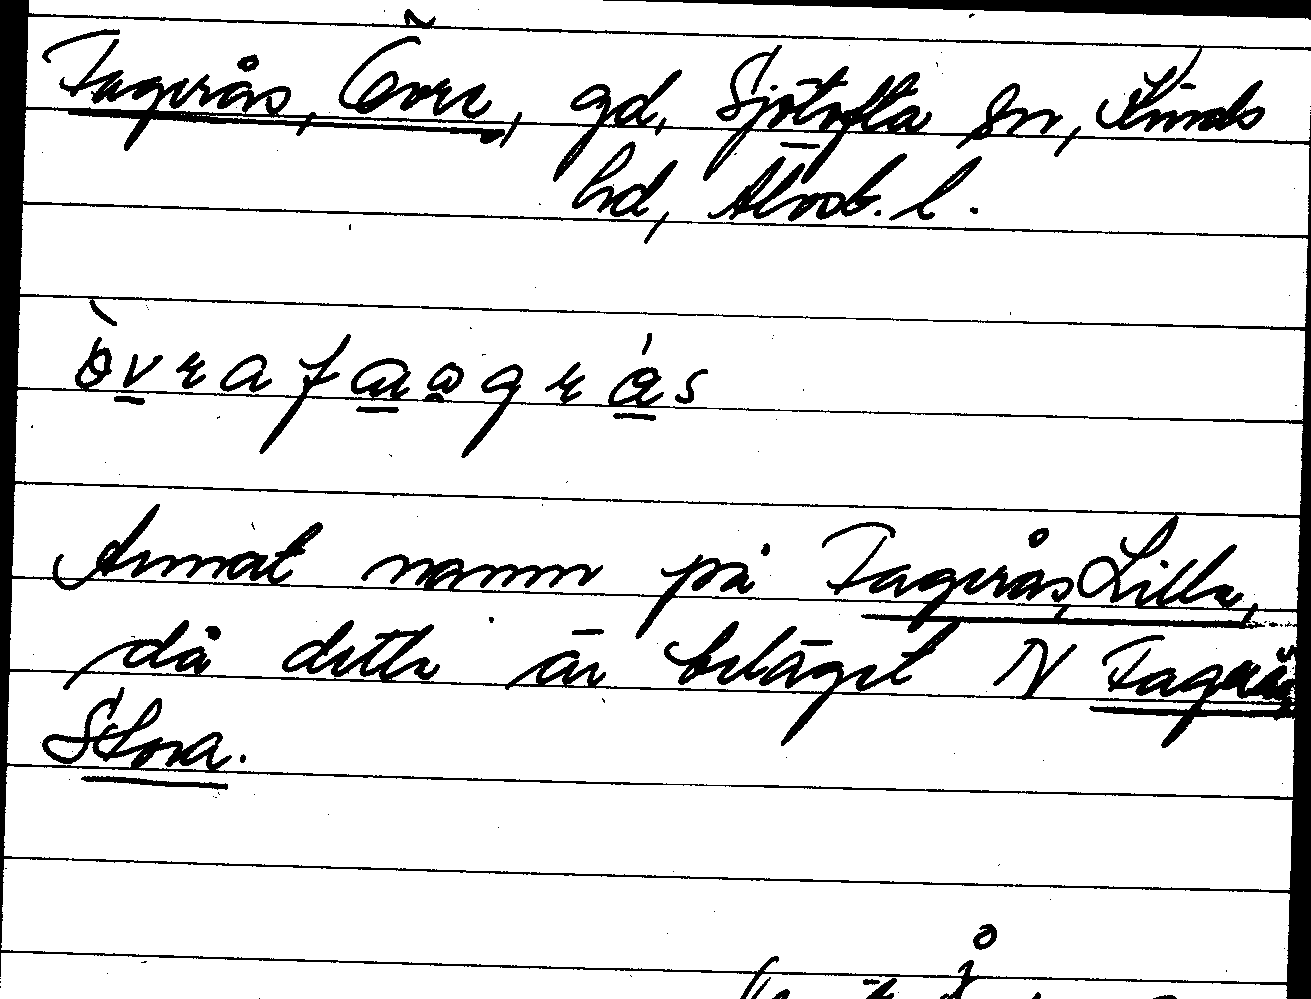 Fagerås, Övre, gd, Sjötofta sn, Kinds
hd, Älvsb. l.
òvrafaagrás
Annat namn på Fagerås, Lilla,
då detta är beläget N Fagerås,
Stora.